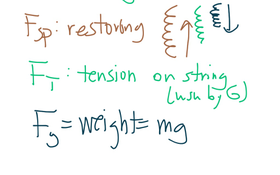 Fsp: restoring
FT: tension on string
(usu by G)
Fg = weight = mg